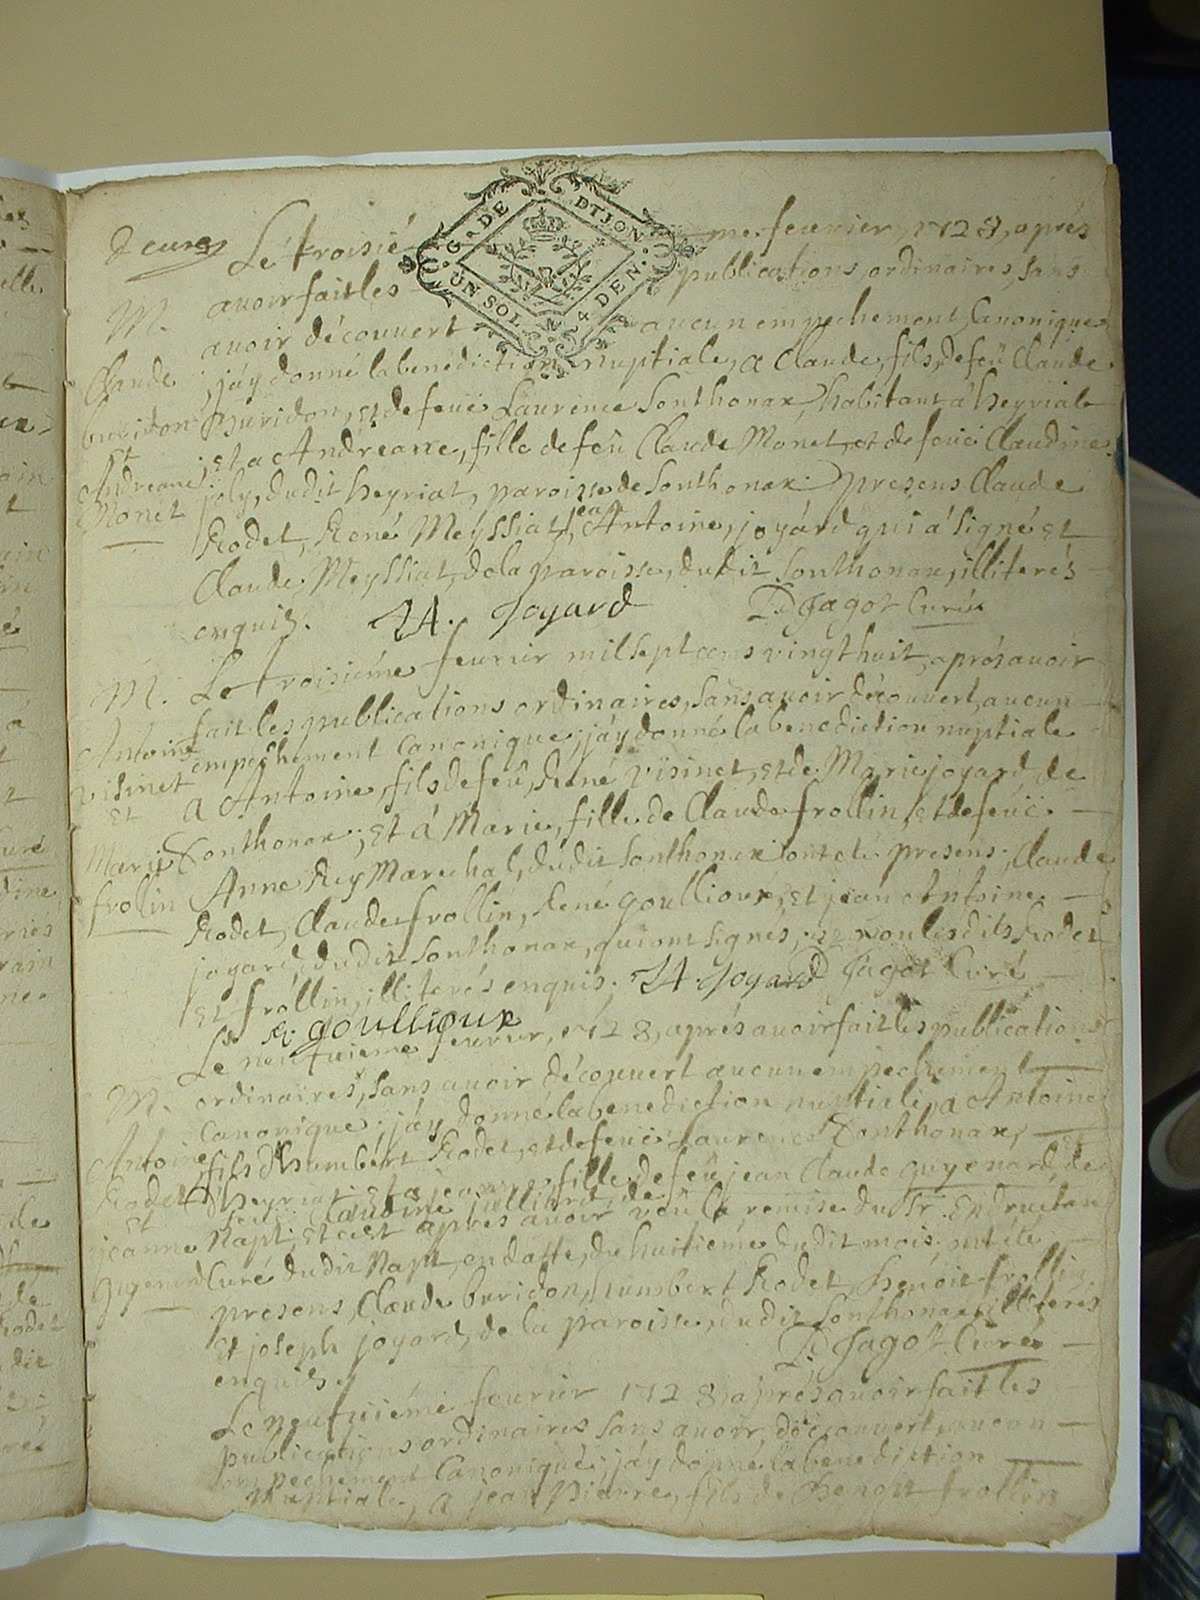 Le troisiéme feuvrier, 1728, aprés
G. DE DIJON.
UN SOL 4 DEN.
avoir fait les publications ordinaires, sans
M. avoir découvert aucun empechement Canonique
Claude ; j'áy donné la benediction nuptiale, a Claude, fils, de feû Claude
buridon Buridon, et de feuë Laurence Sonthonax, habitant á heyriat
Et ; et a Andreanne, fille de feû Claude Monet, et de feuë Claudine
Andreane joly, dudit heyriat, paroisse de Sonthonax. presens Claude
Monet Rodet, René Meyssiat, jean Antoine, joyárd qui á signé et
Claude, Meyssiat, de la paroisse, dudit Sonthonax, illiterés
enquis. J A. Joyard D Jagot Curé
M. Le troisiéme feuvrier mil sept cens vingt huit, aprés avoir
fait les publications ordinaires, sans avoir découvert, aucun
Antoine empéchement canonique ; j'áy donné la benediction nuptiale
visinet a Antoine, fils de feû, René visinet, et de Marie joyard, de
Et Sonthonax ; et á Marie, fille de Claude frollin, et de feuë
Marie Anne Rey Marechal, dudit Sonthonax ont eté presens, Claude
frollin Rodet, Claude frollin, René goullioux, et jean Antoine
joyard, dudit Sonthonax, qui ont signés, et non lesdits Rodet
et frollin, illiterés enquis. J A Joyard D Jagot Curé
R. goullioux
Le neufvieme feuvrier, 1728, aprés avoir fait les publications
M. ordinaires, sans avoir découvert aucun empechement
canonique ; j'áy donné la benediction nuptiale, a Antoine
Antoine fils d'humbert Rodet, et de feuë Laurence Sonthonax,
Rodet d'heyriat, et a jeanne, fille de feû jean Claude guyenard, de
Et feuë Claudine jullierd, de
jeanne Napt, et c'est aprés avoir veû la remise du Sr.
guyenard Curé dudit Napt, en datte, du huitiéme dudit mois, ont eté
presens, Claude buridon, humbert Rodet, benoit frollin
et joseph joyard, de la paroisse, dudit Sonthonax illiterés
enquis. D Jagot Curé
Le neufviémé feuvrier 1728, aprés avoir fait les
publications ordinaires sans avoir découvert aucun
empechement canonique ; j'áy donné la benediction
nuptiale, a jean Pierre, fils de Benoit frollin